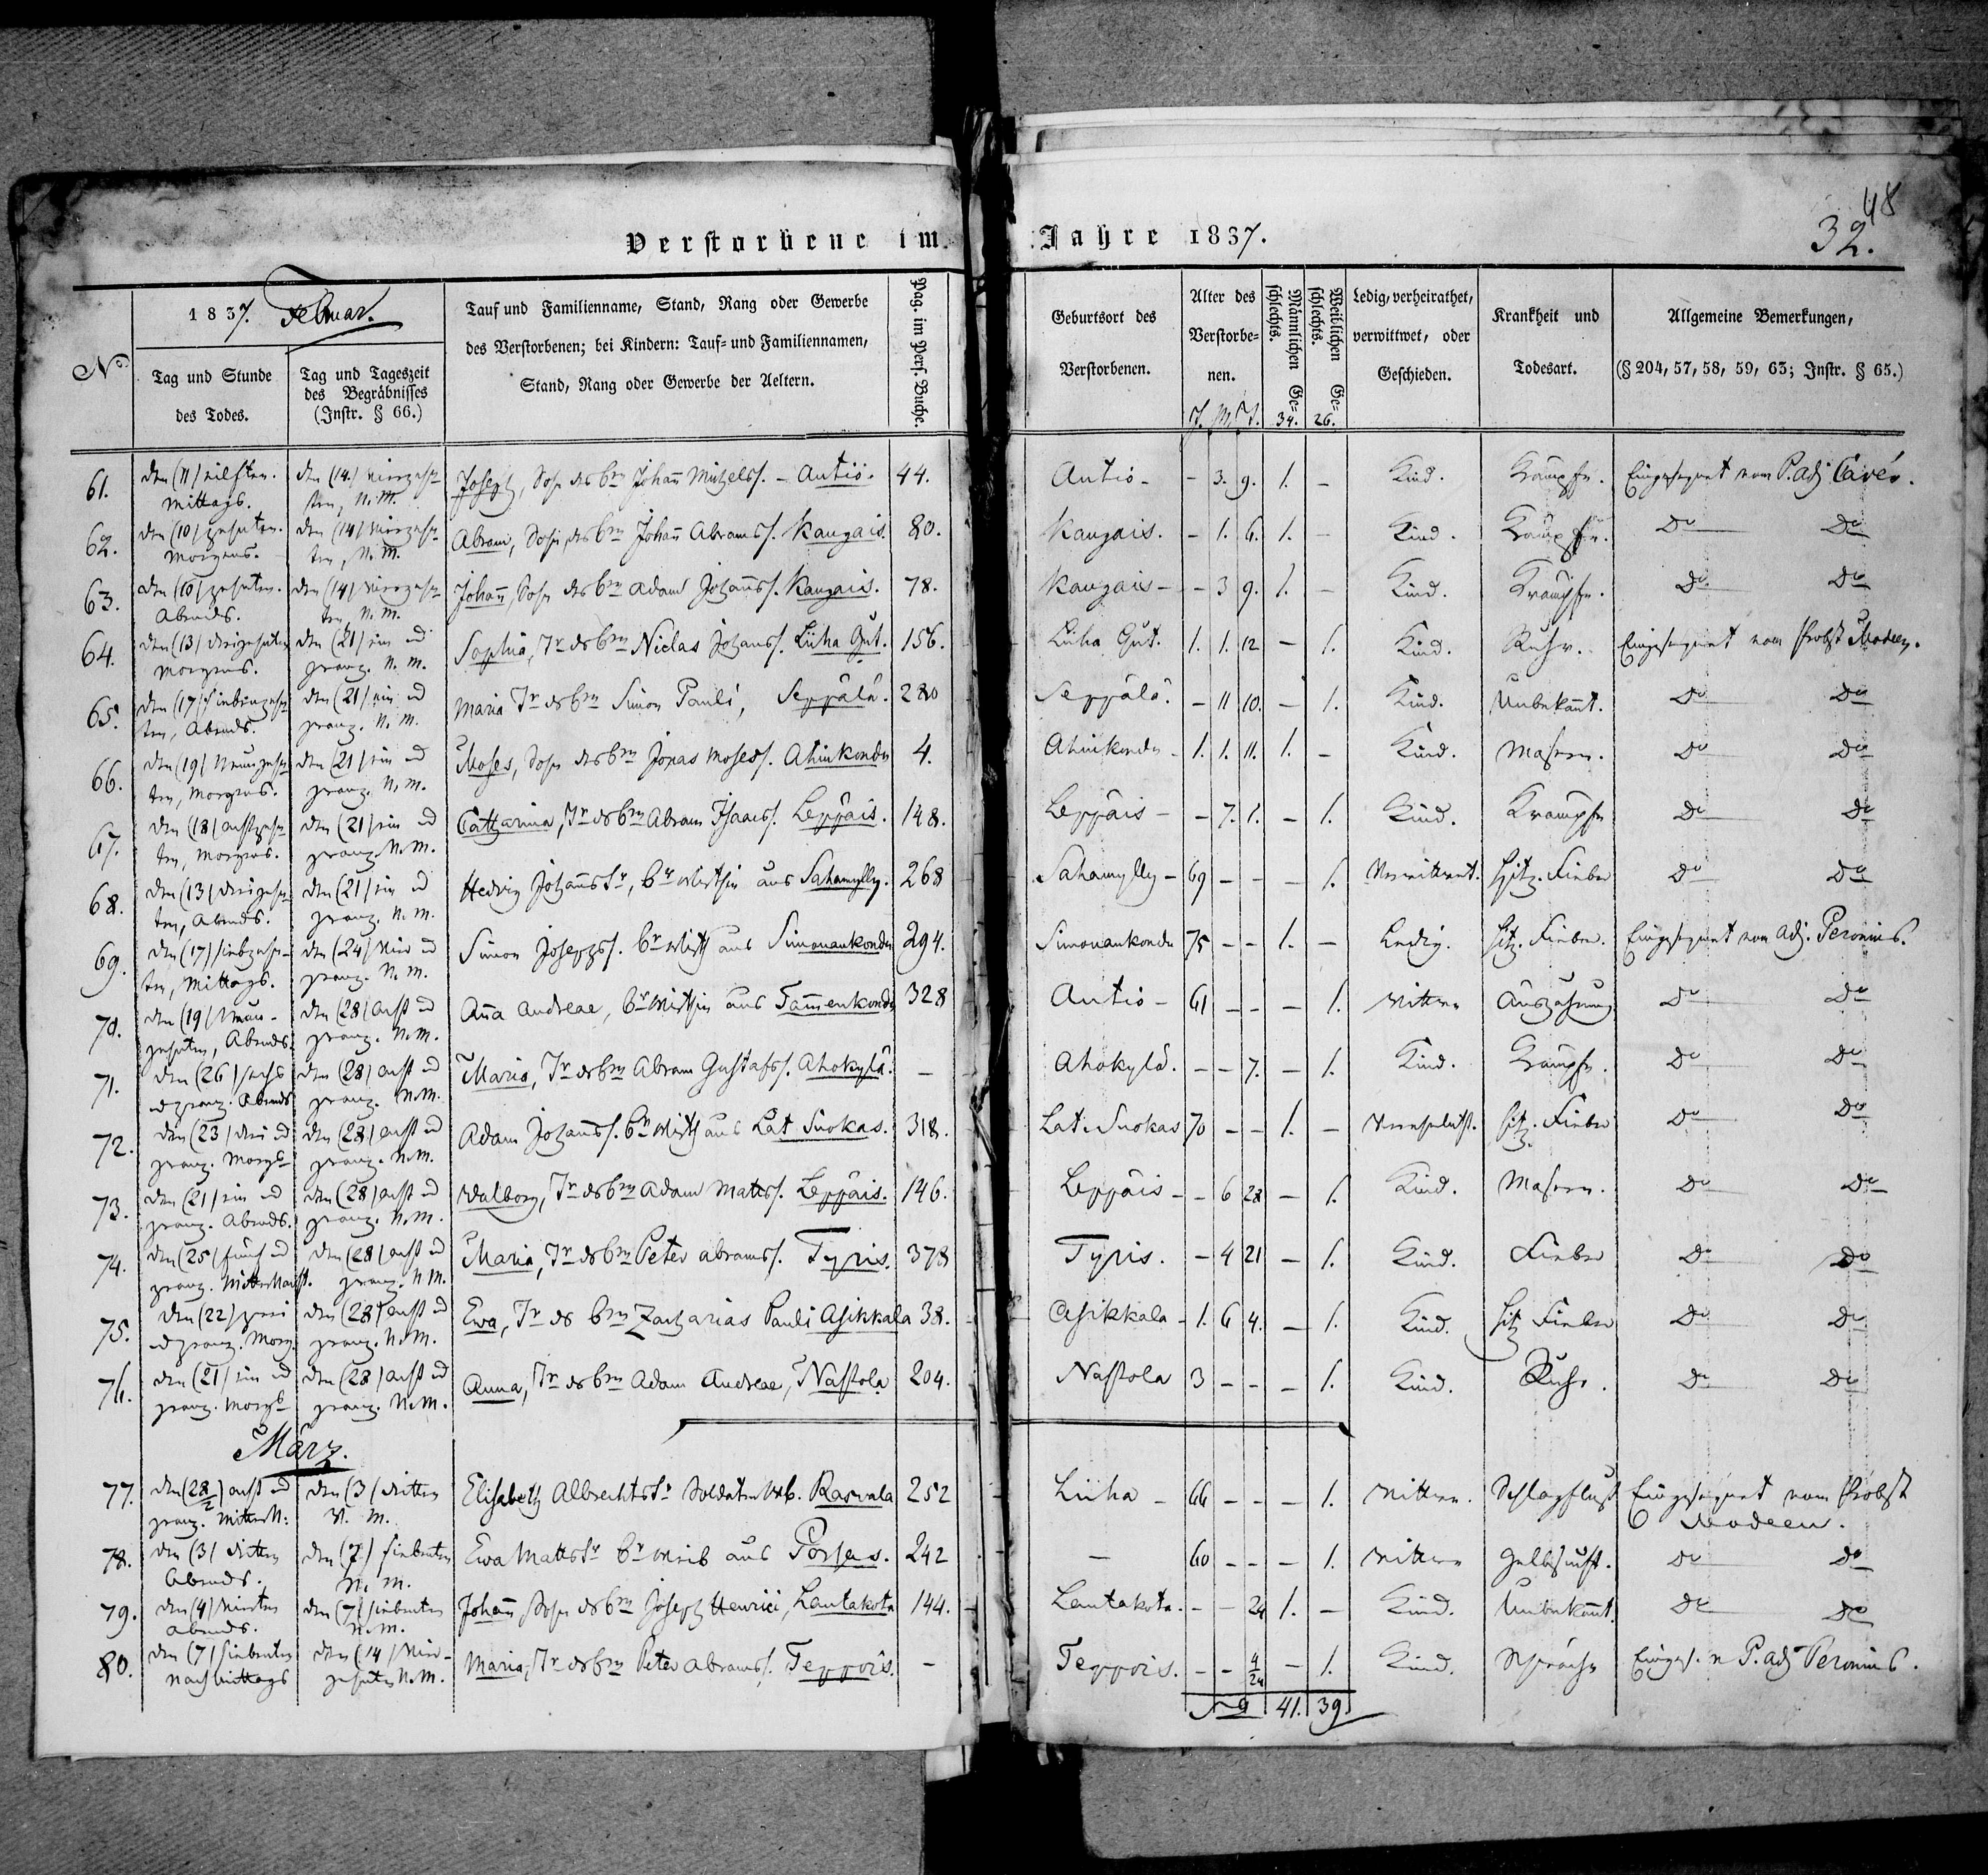 48
32.
Verstorbene im Jahre 1837.
No.
1837. Februar.
Tag und Stunde des Todes.
Tag und Tageszeit des Begräbnisses (Instr. § 66.)
Tauf und Familienname, Stand, Rang oder Gewerbe
des Verstorbenen; bei Kindern: Tauf- und Familiennamen,
Stand, Rang oder Gewerbe der Aeltern.
Pag. im Pers. Buche.
Geburtsort des Verstorbenen.
Alter des Verstorbenen.
J. M. T.
Männlichen Geschlechts. 34.
Weiblichen Geschlechts. 26.
Ledig, verheirathet, verwittwet, oder Geschieden.
Krankheit und Todesart.
Allgemeine Bemerkungen,
(§ 204, 57, 58, 59, 63; Instr. § 65.)
61. den (11) eilften Mittags. den (14) vierzehnten, N. M. Joseph, Sohn des Johann Antiö. 44. Antiö - - 3. 9. 1. - Kind. Krämpfe. Eingesegnet vom P. adj Cavén.
62. den (10) zehnten Morgens. den (14) vierzehnten, N. M. Abram, Sohn des Johann Abramss. Kangais. 80. Kangais. - 1. 6. 1. - Kind. Krämpfe. Do Do
63. den (10) zehnten Abends. den (14) vierzehnten, N. M. Johann, Sohn des Adam Johanss. Kangais. 78. Kangais - - 3 9. 1. - Kind. Krämpfe. Do Do
64. den (13) dreizehnten Morgens. den (21) ein und zwanz. N. M. Sophia, Tr des Niclas Johanss. Liiha Gut. 156. Liiha Gut. 1. 1. 12 - 1. Kind. Ruhr. Eingesegnet vom Probst Modeen.
65. den (17) siebenzehnten, Abends. den (21) ein und zwanz. N. M. Maria Tr des Simon Pauli, Seppälä. 280 Seppälä. - 11 10. - 1. Kind. Unbekannt. Do Do
66. den (19) Neunzehnten, Morgens. den (21) ein und zwanz. N. M. Moses, Sohn des Jonas Mosess. Ahinkondu 4. Ahinkondu - 1. 1. 11. 1. - Kind. Masern. Do Do
67. den (18) achtzehnten, Morgens. den (21) ein und zwanz. N. M. Catharina, Tr des Abram Isaacs. Leppäis. 148. Leppäis - - 7. 1. - 1. Kind. Krämpfe Do Do
68. den (13) dreizehnten, Abends. den (21) ein und zwanz. N. M. Hedvig Johanns Tr, Wirthin aus Sahamylly. 268 Sahamylly - 69 - - - 1. Verwittwet. Hitz. Fieber Do Do
69. den (17) siebzehnten, Mittags. den (24) vier und zwanz. N. M. Simon Josephs. Wirth aus Simonankondu 294. Simonankondu 75 - - 1. - Ledig. Hitz. Fieber. Eingesegnet vom adj. Peronius.
70. den (19) Neunzehnten, Abends. den (28) acht und zwanz. N. M. Anna Andreae, Wirthin aus Tammenkondu 328 Antiö - 61 - - - 1. Wittwe Auszehrung Do Do
71. den (26) sechs und zwanz. Abends den (28) acht und zwanz. N. M. Maria, Tr des Abram Gustafs. Ahokylä. - Ahokylä. - - 7. - 1. Kind. Krämpfe. Do Do
72. den (23) drei und zwanz. Morg. den (28) acht und zwanz. N. M. Adam Johanns. Wirth aus Lat Suokas. 318. Lat. Suokas 70 - - 1. - Hitz. Fieber Do Do
73. den (21) ein und zwanz. Abends. den (28) acht und zwanz. N. M. Walborg, Tr des Adam Matts. Leppäis. 146. Leppäis - - 6 28 - 1. Kind. Masern. Do Do
74. den (25) fünf und zwanz. Mitternacht. den (28) acht und zwanz. N M. Maria, Tr des Peter abramss. Typis. 378 Typis. - 4 21 - 1. Kind. Fieber Do Do
75. den (22) zwei und zwanz. Morg. den (28) acht und zwanz. N. M. Ewa, Tr des Zacharias Pauli Asikkala 38. Asikkala - 1. 6 4. - 1. Kind. Hitz Fieber Do Do
76. den (21) ein und zwanz. Morg. den (28) acht und zwanz. N. M. Anna, Tr des Adam Andreae, Nastola 204. Nastola 3 - - - 1. Kind. Ruhr. Do Do
März.
77. den (28/2) acht und zwanz. Mittern: den (3) dritten N. M. Elisabeth Albrechts Tr Soldaten Wb. Rasvala 252 Liiha - 66 - - - 1. Wittwe. Schlagfluss Eingesegnet vom Probst Modeen.
78. den (3) dritten Abends. den (7) siebenten N. M. Ewa Matts Tr Weib aus Porssas. 242 - 60 - - - 1. Wittwe Gelbsucht. Do Do
79. den (4) vierten Abends. den (7) siebenten N. M. Johann Sohn des Joseph Henrici, Lautakota 144. Lautakota. - - 24 1. - Kind. Unbekannt. Do Do
80. den (7) siebenten Nachmittags den (14) Vierzehnten N. M. Maria, Tr des Peter Abramss. Teppois. - Teppois. - - 4/24 - 1. Kind. Schwäche Einges. v P. adj Peronius.
41. 39.